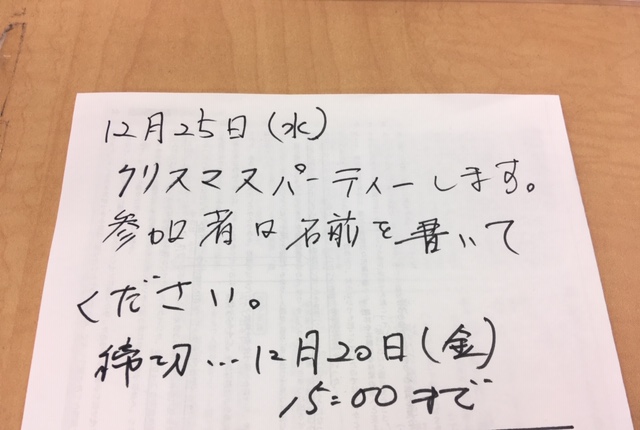 12月25日(水)
クリスマスパーティーします。
参加者は名前を書いて
ください。
締切…12月20日(金)
15:00まで